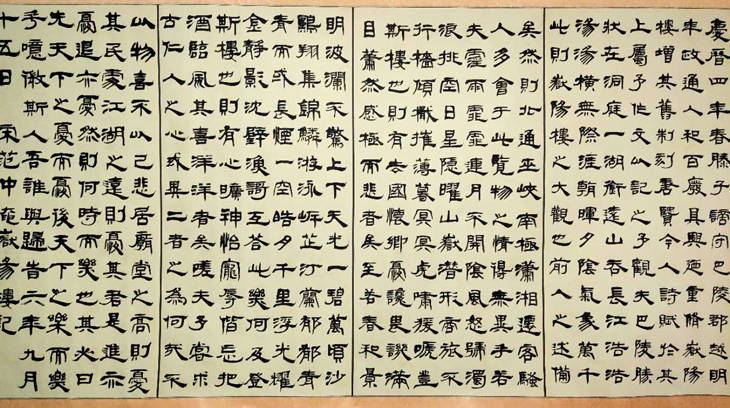 慶曆四年春滕子謫守巴陵郡越明
年政通人和百廢具興迺重脩嶽陽
樓增其舊制刻唐賢今人詩賦於其
上屬予作文以記之予觀夫巴陵勝
狀在洞庭一湖銜遠山吞長江浩浩
湯湯橫無際涯朝暉夕陰氣象萬千
此則嶽陽樓之大觀也前人之述備
矣然則北通巫峽南極瀟湘遷客騷
人多會于此覽物之情得無異乎若
夫霪雨霏霏連月不開陰風怒號濁
浪排空日星隱曜山嶽潛形商旅不
行檣傾檝摧薄暮冥冥虎嘯猨啼登
斯樓也則有去國懷鄉憂讒畏譏滿
目蕭然感極而悲者矣至若春和景
明波瀾不驚上下天光一碧萬頃沙
鷗翔集錦鱗游泳岸芷汀蘭郁郁青
青而或長煙一空皓月千里浮光耀
金靜影沈璧漁歌互答此樂何極登
斯樓也則有心曠神怡寵辱皆忘把
酒臨風其喜洋洋者矣嗟夫予嘗求
古仁人之心或異二者之為何哉不
以物喜不以己悲居廟堂之高則憂
其民處江湖之遠則憂其君是進亦
憂退亦憂然則何時而樂也其必曰
先天下之憂而憂後天下之樂而樂
乎噫微斯人吾誰與歸時六年九月
十五日 宋范仲淹嶽陽樓記